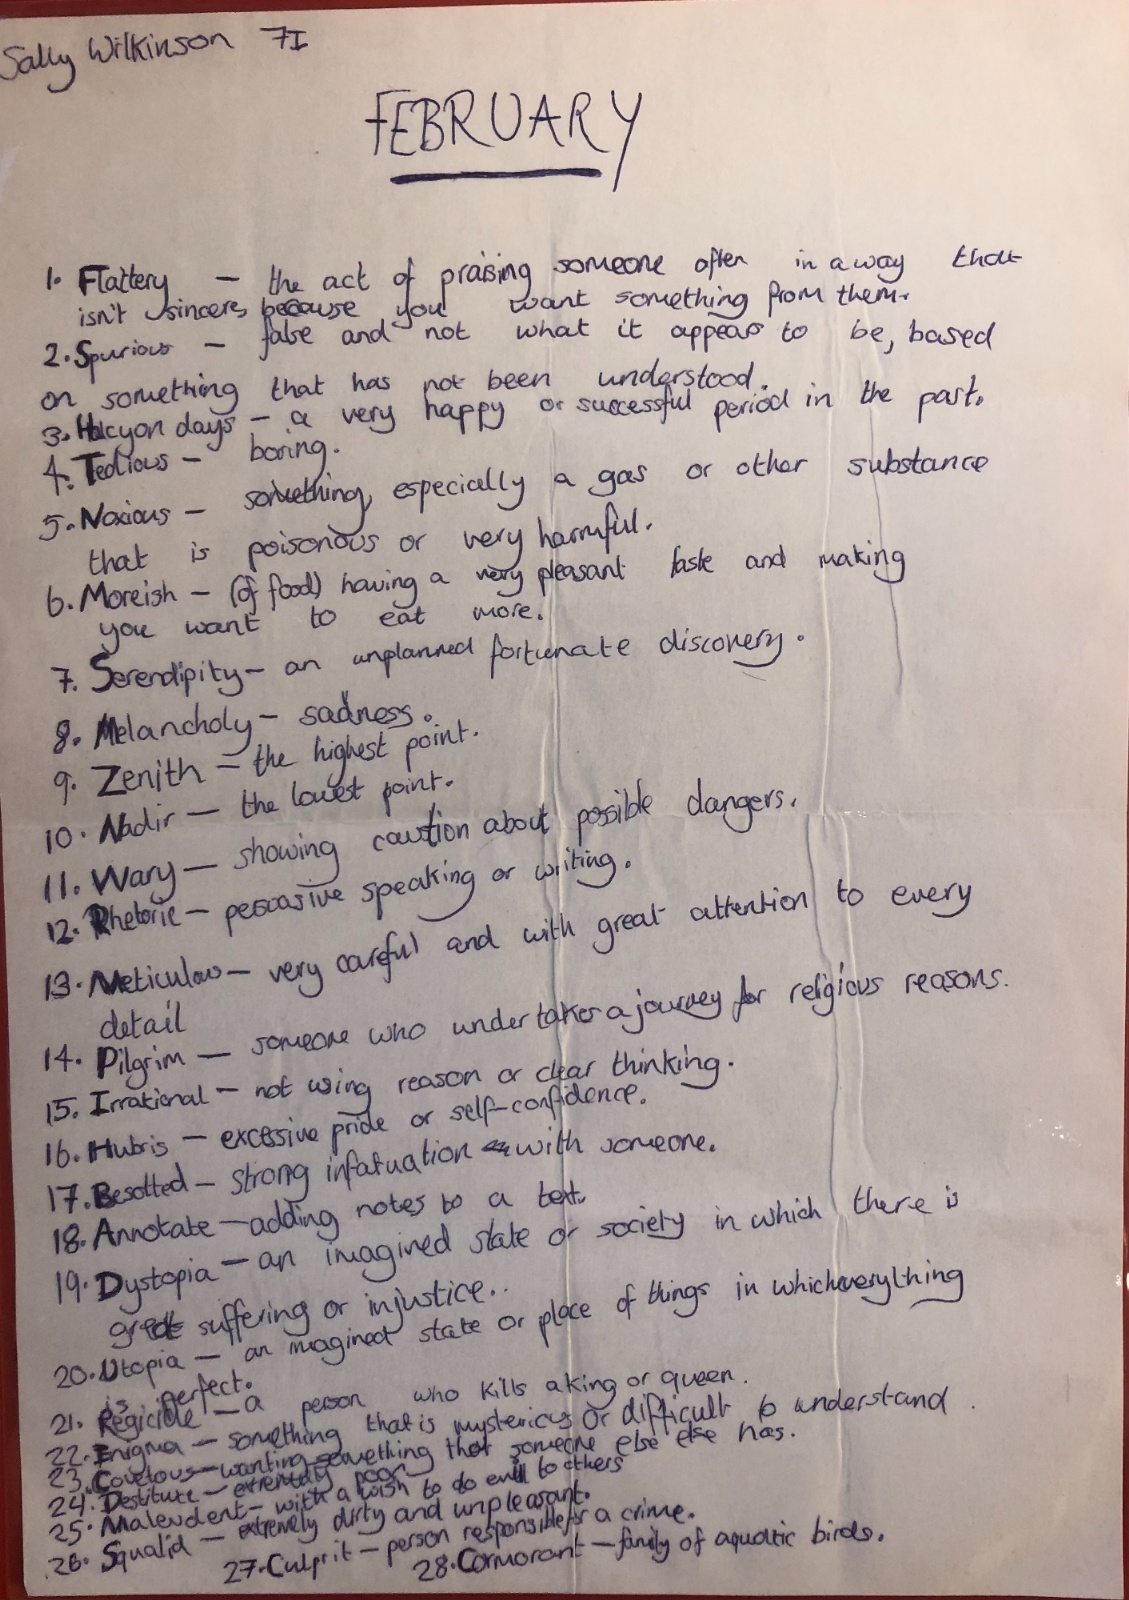 Sally Wilkinson 7I
FEBRUARY
1. Flattery — the act of praising someone often in a way that
isn't sincere, because you want something from them.
2. Spurious — false and not what it appears to be, based
on something that has not been understood.
3. Halcyon days — a very happy or successful period in the past.
4. Tedious — boring.
5. Noxious — something, especially a gas or other substance
that is poisonous or very harmful.
6. Moreish — (of food) having a very pleasant taste and making
you want to eat more.
7. Serendipity — an unplanned fortunate discovery.
8. Melancholy — sadness.
9. Zenith — the highest point.
10. Nadir — the lowest point.
11. Wary — showing caution about possible dangers.
12. Rhetoric — persuasive speaking or writing.
13. Meticulous — very careful and with great attention to every
detail
14. Pilgrim — someone who undertakes a journey for religious reasons.
15. Irrational — not using reason or clear thinking.
16. Hubris — excessive pride or self-confidence.
17. Besotted — strong infatuation with someone.
18. Annotate — adding notes to a text.
19. Dystopia — an imagined state or society in which there is
great suffering or injustice..
20. Utopia — an imagined state or place of things in which everything
is perfect.
21. Regicide — a person who kills a king or queen.
22. Enigma — something that is mysterious or difficult to understand.
23. Covetous — wanting something that someone else else has.
24. Destitute — extremely poor
25. Malevolent — with a wish to do evil to others
26. Squalid — extremely dirty and unpleasant.
27. Culprit — person responsible for a crime.
28. Cormorant — family of aquatic birds.